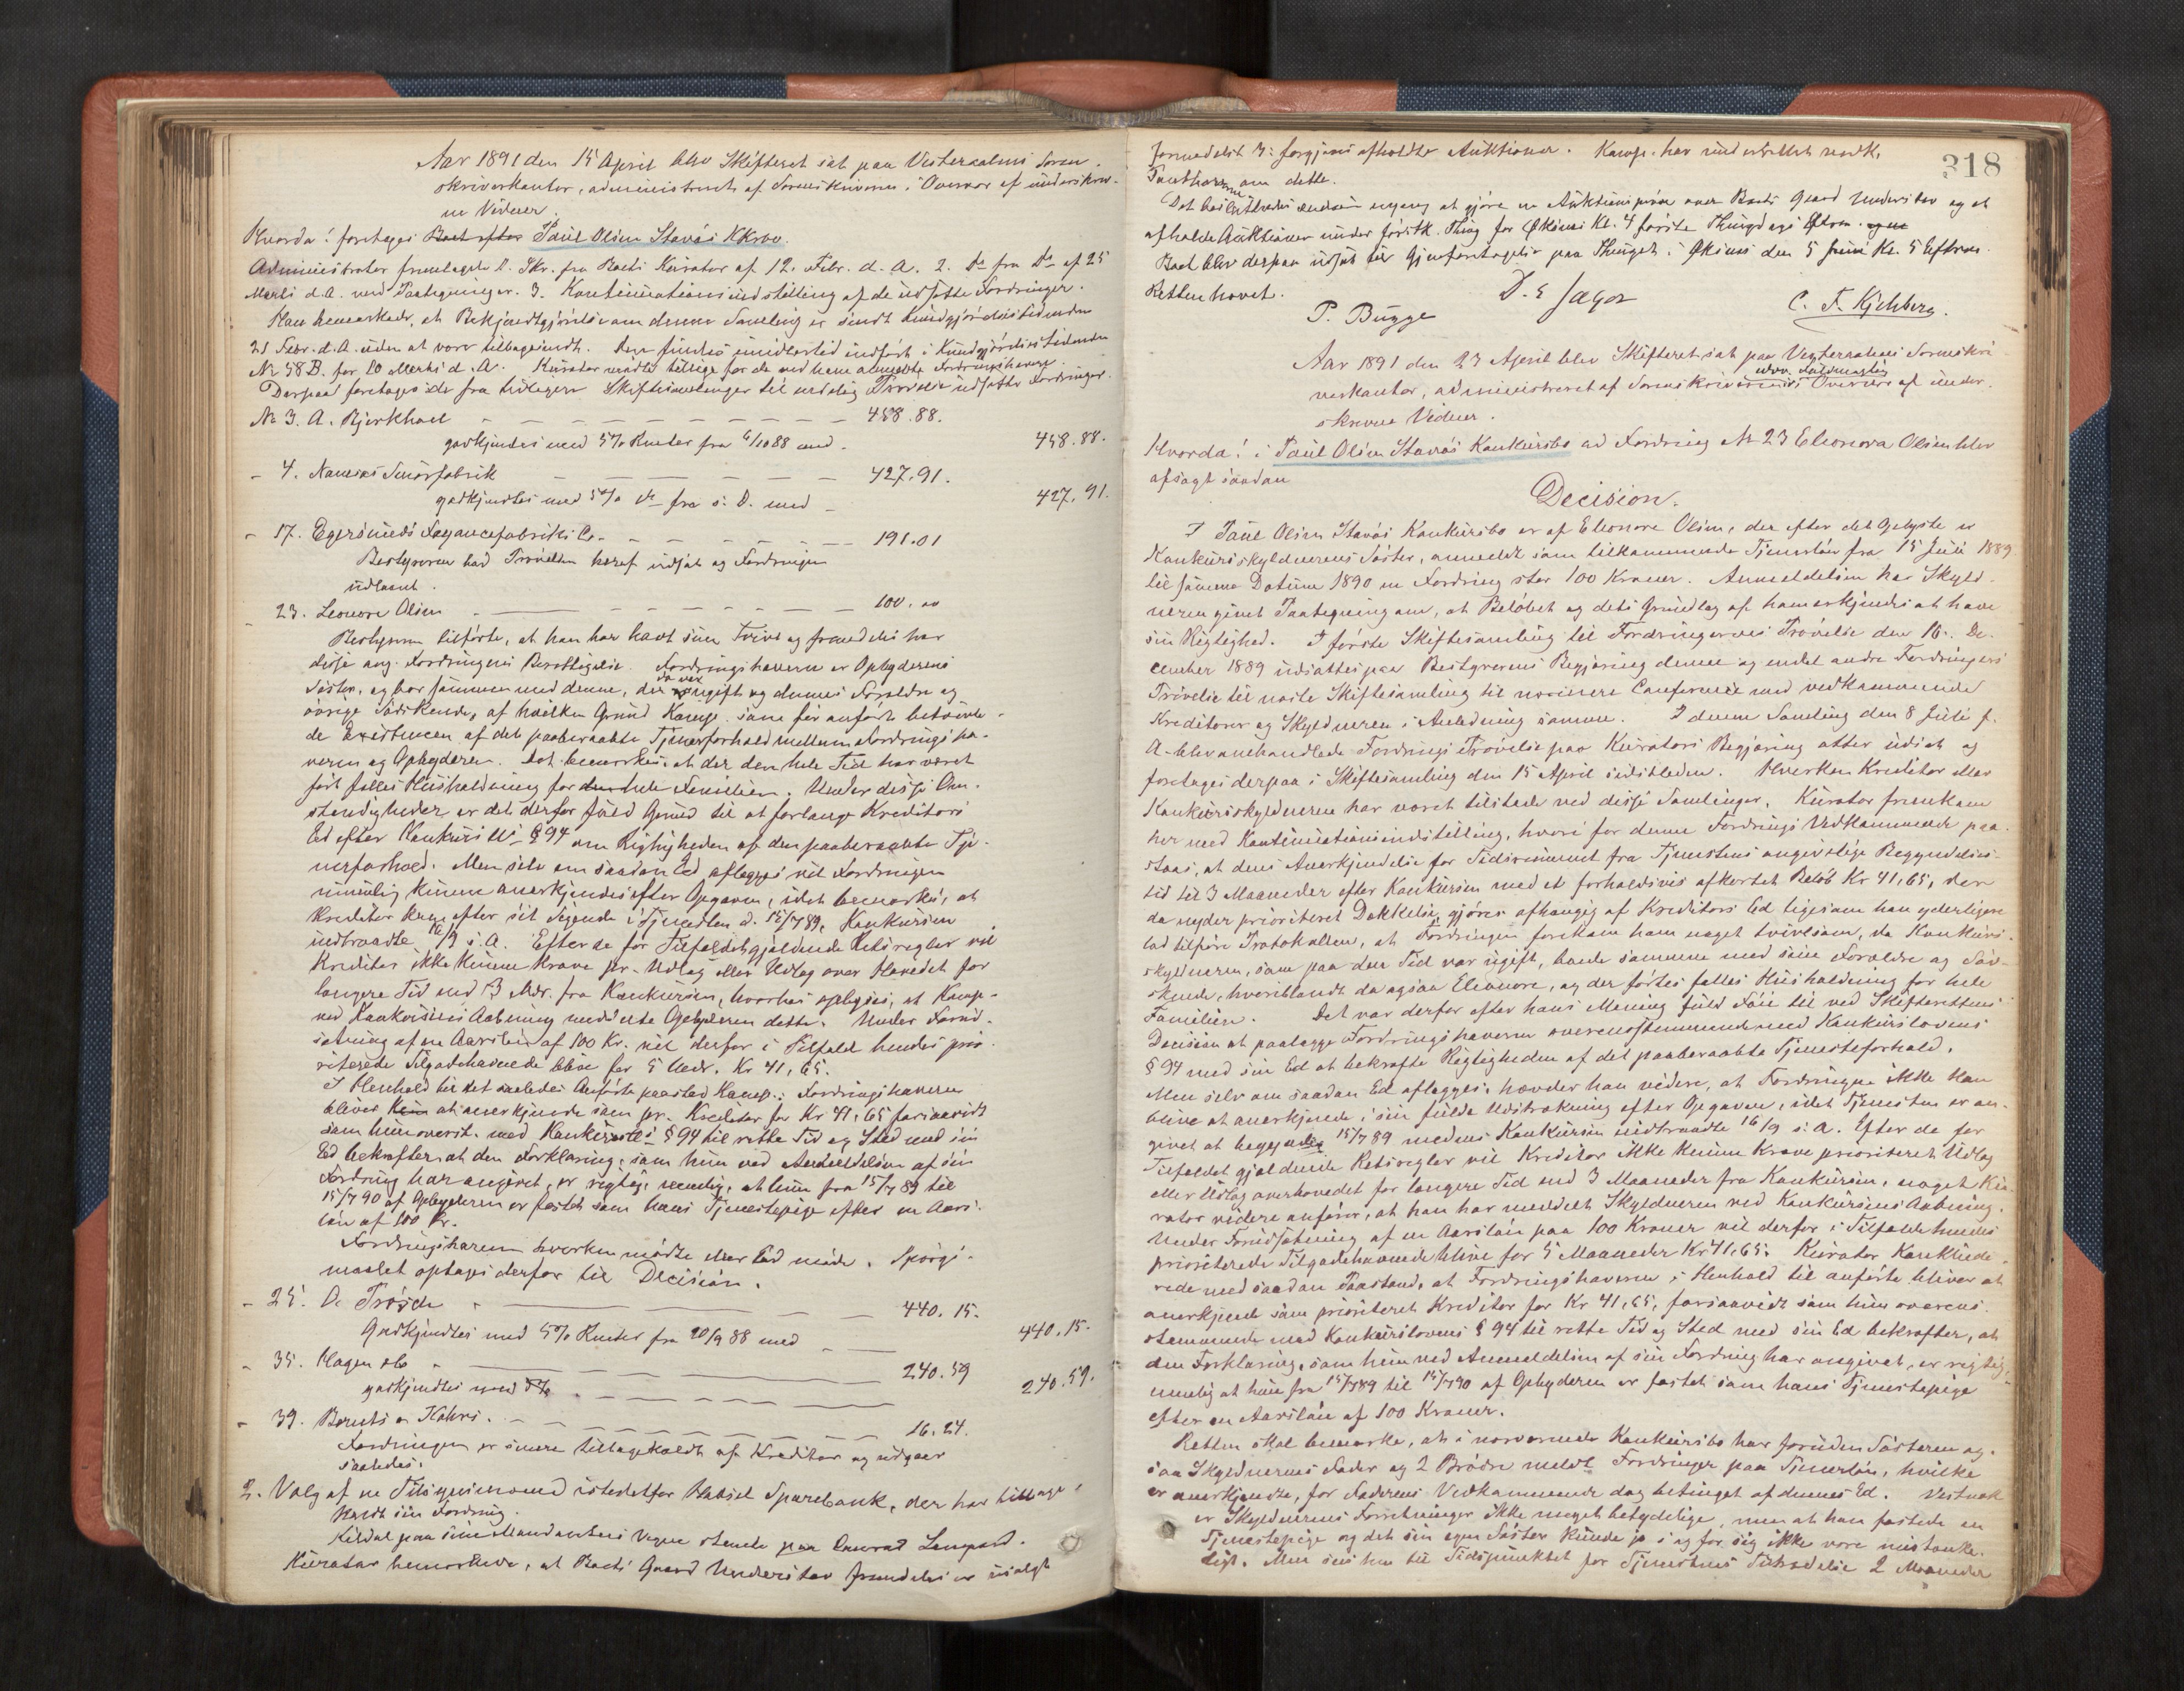 Aar 1891 den 15 April blev Skifteret sat paa Vesteraalens Soren-
skriverkontor, administreret af Sorenskriveren i Overvær af underskrev-
ne Vidner.
Hvorda! foretages Boet efter Paul Olsen Stavøs KKrbo.
Administrator fremlagde 1. Skr. fra Boets Kurator af 12. Febr. d. A. 2. Do fra Do af 25
Marts d.A. med Paategninger. 3. Kontinuationsindstilling af de udsatte Fordringer.
Han bemærkede, at Bekjendtgjørelse om denne Samling er sendt Kundgjørelsestidenden
21 Febr. d.A. uden at være tilbagesendt. Den findes imidlertid indført i Kundgjørelses Tidenden
No 58 B. for 10 Marts d.A. Kurator mødte tillige for de ved ham anmeldte Fordringshavere.
Derpaa foretages de fra tidligere Skiftesamlinger til endelig Prøvelse udsatte Fordringer.
No 3. A. Bjerkhoel 458.88.
godkjendes med 5% Renter fra 6/10 88 med 458.88.
- 4. Namsos Smørfabrik 427.91.
godkjendtes med 5% Do fra s. D. med 427.91.
- 17. Egersunds Fayancefabriks Co. 191.01
Bestyreren bad Prøvelsen heraf udsat og Fordringen
udlaant.
23. Leonore Olsen 100.00
Bestyreren tilførte, at han har havt sin Tvivl og fremdeles har
disse ang. Fordringens Berettigelse. Fordringshaveren er Opbyderens
Søster, og bor sammen med denne, der da var ugift og dennes Forældre og
øvrige Sødskende, af hvilken Grund Komp. som før anført betvivle-
de Existencen af det paaberaabte Tjenerforhold mellem Fordringsha-
veren og Opbyderen. Det bemærkes, at der den hele Tid har været
ført fælles Husholdning for den hele Familien. Under disse Om-
stændigheder er det derfor fuld Grund til at forlange Kreditors
Ed efter Konkursl. § 94 om Rigtigheden af den paaberaabte Tje-
nerforhold. Men selv om saadan Ed aflægges vil Fordringen
umulig kunne anerkjendes efter Opgaven, idet bemærkes, at
Kreditor kom efter sit Sigende i Tjenesten d. 15/7 89, Konkursen
indtraadte 16/9 s. A. Efter de for Tilfældet gjældende Retsregler vil
Kreditor ikke kunne kræve pr. Udlæg eller Udlæg over Hovedet for
længere Tid end 3 Mdr. fra Konkursen, hvorhos oplyses, at Komp.
ved Konkursens Aabning meddelte Opbyderen dette. Under Forud-
sætning af en Aarsløn af 100 Kr. vil derfor i Tilfæld hendes prio-
riterede Tilgodehavende blive for 5 Mdr. Kr 41,65.
I Henhold til det saaledes Anførte paastod Komp.: Fordringshaveren
bliver kun at anerkjende som pr. Kreditor for Kr 41,65 forsaavidt
som hun overst. med Konkurslls § 94 til rette Tid og Sted med sin
Ed bekræfter at den Forklaring, som hun ved Anmeldelsen af sin
Fordring har angivet, er rigtig, nemlig, at hun fra 15/7 89 til
15/7 90 af Opbyderen er fæstet som hans Tjenestepige efter en Aars-
løn af 100 Kr.
Fordringshaveren hverken mødte eller lod møde. Spørgs-
maalet optages derfor til Decision.
- 25. O. Trøsde 440.15.
Godkjendtes med 5% Renter fra 20/9 88 med 440.15.
- 35. Hagen & Co 240.59
godkjendtes med 5% 240.59.
- 39. Berents & Kahrs. 16.24.
Fordringen er senere tilbagekaldt af Kreditor og udgaar
saaledes.
2. Valg af en Tilsynsmand istedetfor Hadsel Sparebank, der har tilbage-
kaldt sin Fordring.
Kildal paa sine Mandanters Vegne stemte paa Conrad
Kurator bemærkede, at Boets Gaard Understav fremdeles er usolgt
318
formedelst 3: forgjæves afholdte Auktioner. Komp. har underrettet vedk.
Panthavere om dette.
Det besluttedes endnu engang at gjøre en Auktionsprøve over Boets Gaard Understav og at
afholde Auktionen under førstk. Thing for Øksnes Kl. 4 første Thingdags Efterm.
Boet blev derpaa udsat til Gjenforetagelse paa Thinget i Øksnes den 5 Juni Kl. 5 Efterm.
Retten hævet.
P. Bugge D. E Jager C. F. Kjelsberg.
Aar 1891 den 23 April blev Skifteret sat paa Vesteraalens Sorenskri-
verkontor, administreret af Sorenskriverens edsv. Fuldmægtig i Overvær af under-
skrevne Vidner.
Hvorda! i Paul Olsen Stavøs Konkursbo ad Fordring No 23 Eleonora Olsen blev
afsagt saadan
Decision.
I Paul Olsen Stavøs Konkursbo er af Eleonore Olsen, der efter det Oplyste er
Konkursskyldnerens Søster, anmeldt som tilkommende Tjenerløn fra 15 Juli 1889
til samme Datum 1890 en Fordring stor 100 Kroner. Anmeldelsen har Skyld-
neren givet Paategning om, at Beløbet og dets Grundlag af ham erkjendes at have
sin Rigtighed. I første Skiftesamling til Fordringernes Prøvelse den 16. De-
cember 1889 udsattes paa Bestyrerens Begjæring denne og endel andre Fordringers
Prøvelse til næste Skiftesamling til nærmere Conference med vedkommende
Kreditorer og Skyldneren i Anledning samme. I denne Samling den 8 Juli f.
A. blev omhandlede Fordrings Prøvelse paa Kurators Begjæring atter udsat og
foretages derpaa i Skiftesamling den 15 April sidstleden. Hverken Kreditor eller
Konkursskyldneren har været tilstede ved disse Samlinger. Kurator fremkom
her med Kontinuationsindstilling, hvori for denne Fordrings Vedkommende paa-
staaes, at dens Anerkjendelse for Tidsrummet fra Tjenestens angivelige Begyndelses-
tid til 3 Maaneder efter Konkursen med et forholdsvis afkortet Beløb Kr 41,65, der
da nyder prioriteret Dækkelse, gjøres afhængig af Kreditors Ed ligesom han yderligere
lod tilføre Protokollen, at Fordringen forekom ham noget tvivlsom, da Konkurs-
skyldneren, som paa den Tid var ugift, boede sammen med sine Forældre og Sød-
skende, hvoriblandt da ogsaa Eleonore, og der førtes fælles Husholdning for hele
Familien. Det var derfor efter hans Mening fuld Føie til ved Skifterettens
Decision at paalægge Fordringshaveren overensstemmende med Konkurslovens
§ 94 med sin Ed at bekræfte Rigtigheden af det paaberaabte Tjenesteforhold.
Men selv om saadan Ed aflægges, hævder han videre, at Fordringen ikke kan
blive at anerkjende i sin fulde Udstrækning efter Opgaven, idet Tjenesten er an-
givet at begynde 15/7 89 medens Konkursen indtraadte 16/9 s. A. Efter de for
Tilfældet gjældende Retsregler vil Kreditor ikke kunne kræve prioriteret Udlæg
eller Udlæg overhovedet for længere Tid end 3 Maaneder fra Konkursen, noget Ku-
rator videre anfører, at han har meddelt Skyldneren ved Konkursens Aabning.
Under Forudsætning af en Aarsløn paa 100 Kroner vil derfor i Tilfælde hendes
prioriterede Tilgodehavende blive for 5 Maaneder Kr 41,65. Kurator konklude-
rede med saadan Paastand, at Fordringshaveren i Henhold til anførte bliver at
anerkjende som prioriteret Kreditor for Kr 41,65, forsaavidt som hun overens-
stemmende med Konkurslovens § 94 til rette Tid og Sted med sin Ed bekræfter, at
den Forklaring, som hun ved Anmeldelsen af sin Fordring har angivet, er rigtig,
nemlig at hun fra 15/7 89 til 15/7 90 af Opbyderen er fæstet som hans Tjenestepige
efter en Aarsløn af 100 Kroner.
Retten skal bemærke, at i nærværende Konkursbo har foruden Søsteren og-
saa Skyldnerens Fader og 2 Brødre meldt Fordringer paa Tjenerløn, hvilke
er anerkjendte, for Faderens Vedkommende dog betinget af dennes Ed. Vistnok
er Skyldnerens Forretninger ikke meget betydelige, men at han fæstede en
Tjenestepige og det sin egen Søster kunde jo i og for sig ikke være mistænke-
ligt. Men sees hen til Tidspunktet for Tjenestens Tiltrædelse 2 Maaneder